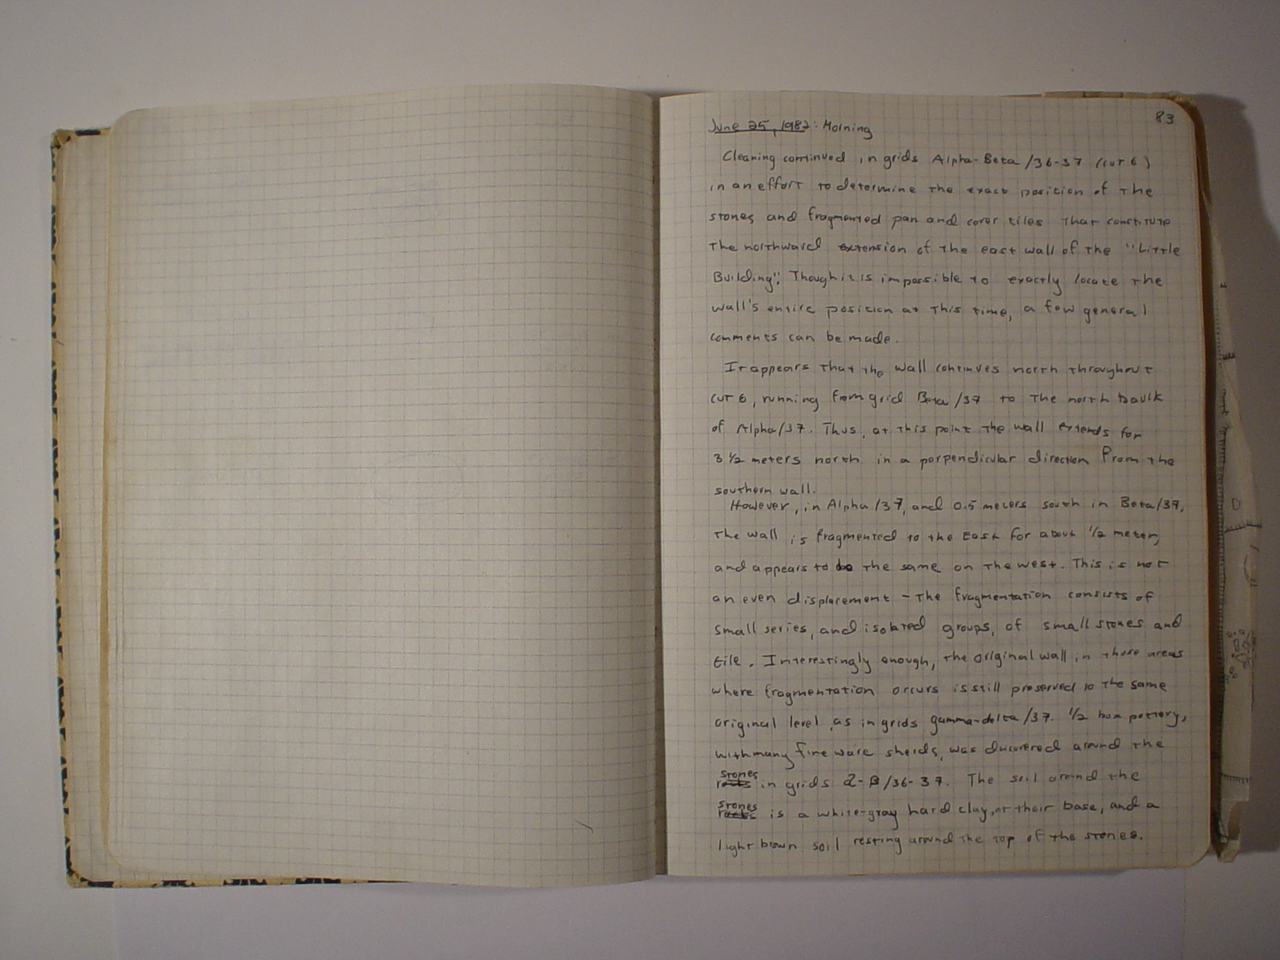 83
June 25, 1982: Morning
Cleaning continued in grids Alpha-Beta/36-37 (cut 6)
in an effort to determine the exact position of the
stones and fragmented pan and cover tiles that constitute
the northward extension of the east wall of the "Little
Building". Though it is impossible to exactly locate the
wall's entire position at this time, a few general
comments can be made.
It appears that the wall continues north throughout
cut 6, running from grid Beta/37 to the north baulk
of Alpha/37. Thus, at this point the wall extends for
3 1/2 meters north in a perpendicular direction from the
southern wall.
However, in Alpha/37, and 0.5 meters south in Beta/37,
the wall is fragmented to the East for about 1/2 meter,
and appears to be the same on the west. This is not
an even displacement - the fragmentation consists of
small series, and isolated groups, of small stones and
tile. Interestingly enough, the original wall in those areas
where fragmentation occurs is still preserved to the same
original level, as in grids gamma-delta/37. 1/2 box pottery,
with many fine ware sherds, was discovered around the
stones in grids α-β/36-37. The soil around the
stones is a white-gray hard clay, at their base, and a
light brown soil resting around the top of the stones.